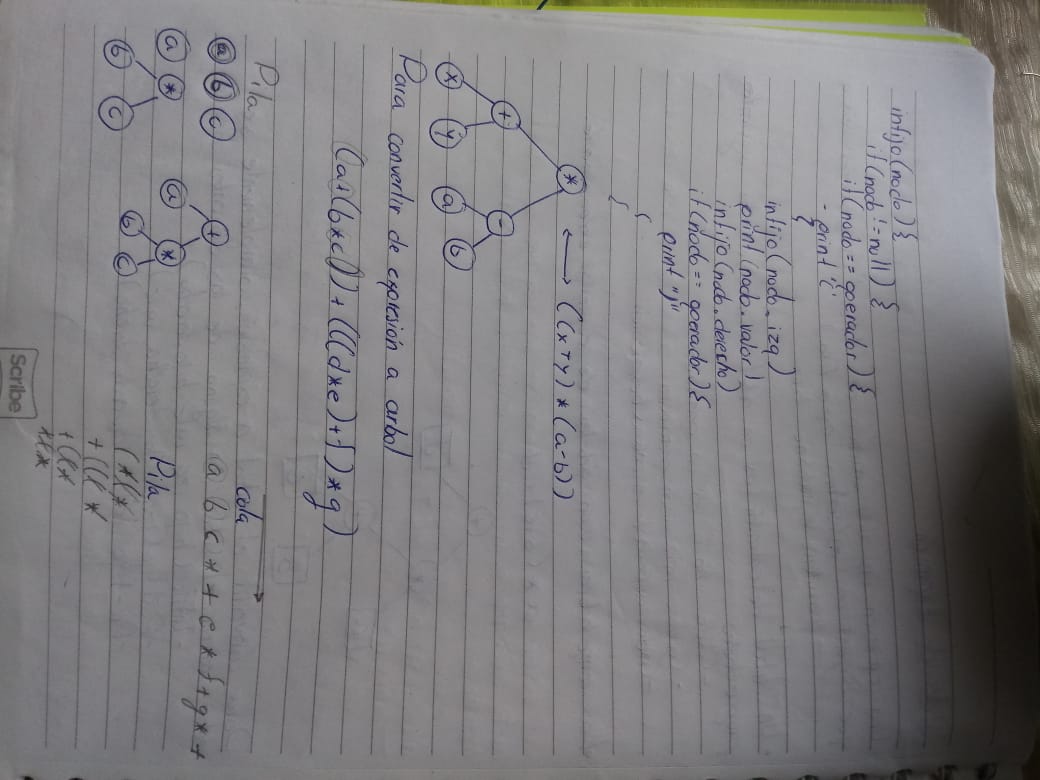 infijo(nodo){
if(nodo != null) {
if(nodo == operador) {
- print "("
}
infijo(nodo.izq)
print(nodo.valor)
infijo(nodo.derecho)
if(nodo == operador){
print ")"
}
}
* ⟷ ((x+y) * (a-b))
+ -
x y a b
Para convertir de expresión a arbol
(a+(b*c)) + (((d*e)+f)*g)
Pila
cola
a b c
+
a b c * + c * f + g * +
a *
a *
Pila
b c
b c
Scribe